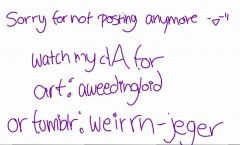 Sorry for not posting anymore
watch my dA for
art: aweedingloid
or tumblr: weirrn-jeger